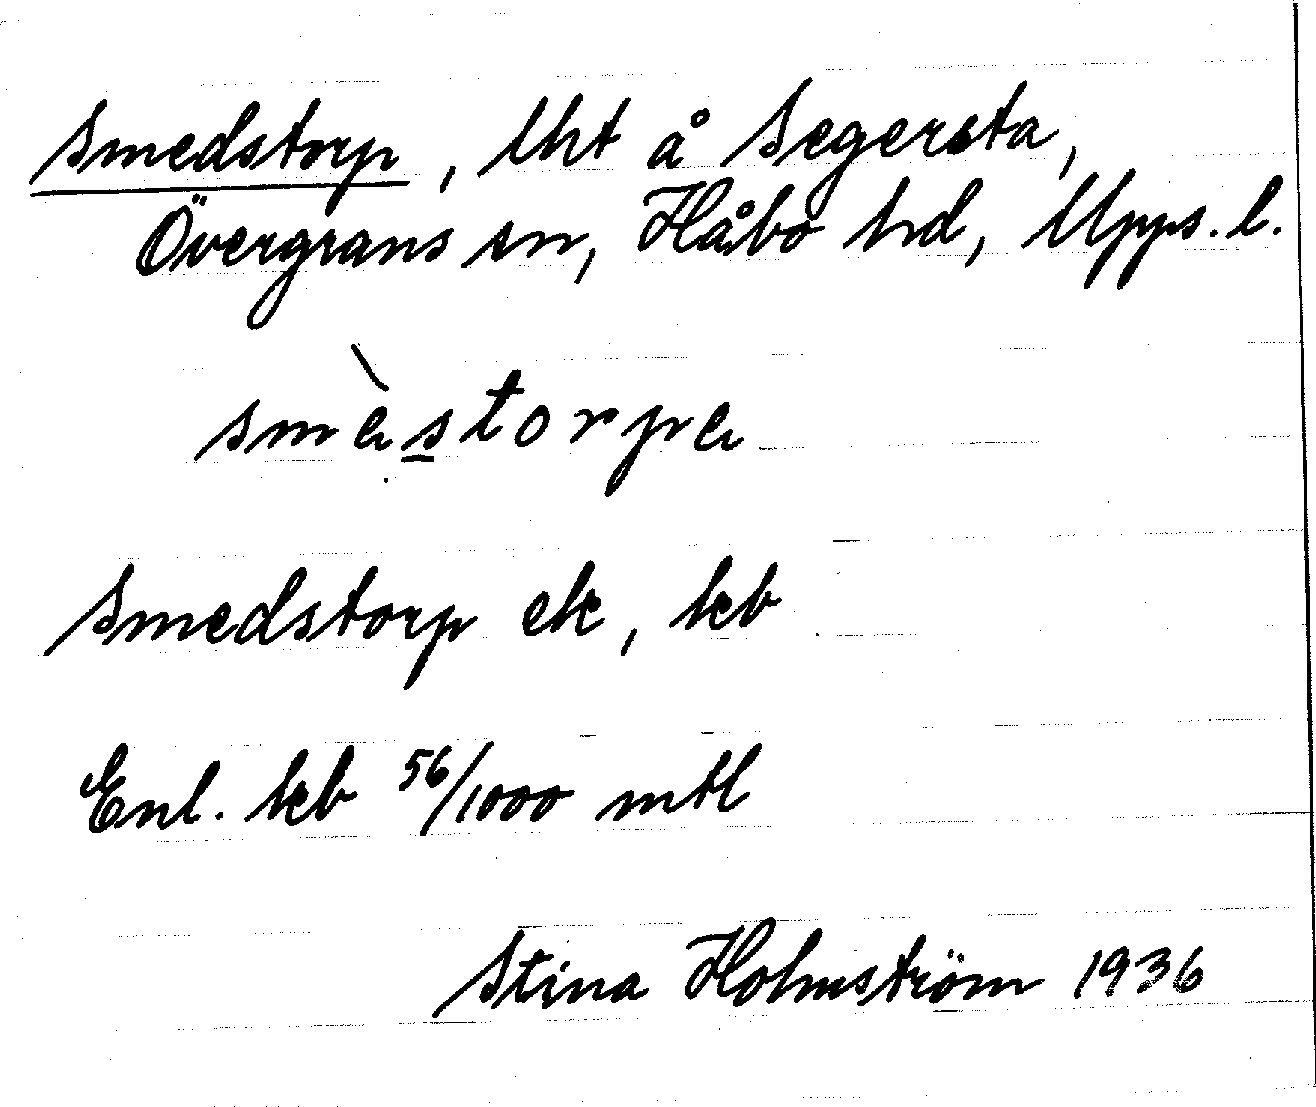 Smedstorp, Uht å Segersta,
Övergrans sn, Håbo hd, Upps. l.
smàstorpa
Smedstorp ek, kb
Enl. kb 56/1000 mtl
Stina Holmström 1936